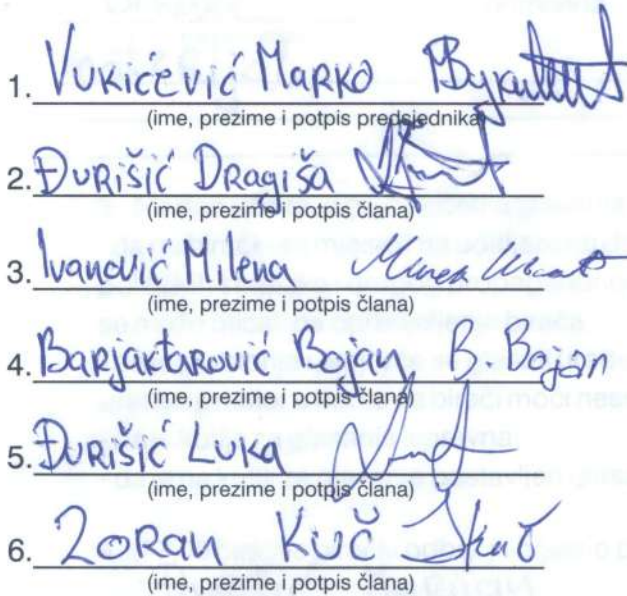 1. Vukićević Marko
(ime, prezime i potpis predsjednika)
2. Đurišić Dragiša
(ime, prezime i potpis člana)
3. Ivanović Milena
(ime, prezime i potpis člana)
4. Barjaktarović Bojan B Bojan
(ime, prezime i potpis člana)
5. Đurišić Luka
(ime, prezime i potpis člana)
6. Zoran Kuč
(ime, prezime i potpis člana)